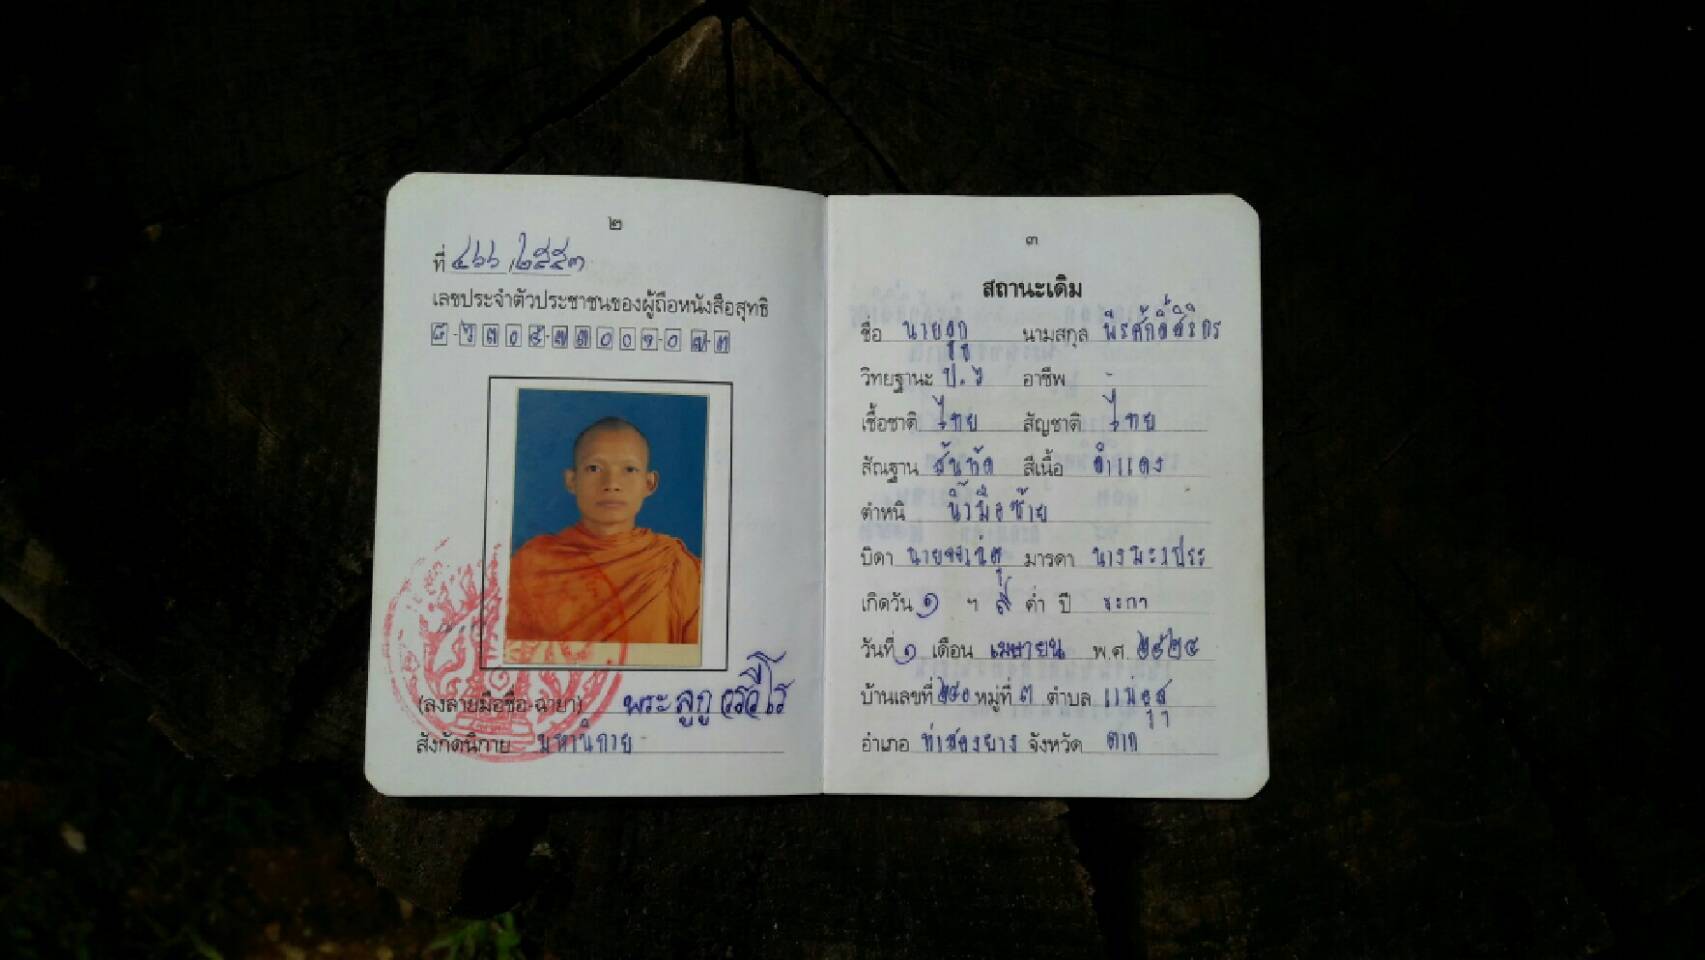 ๒
ที่ ๔๖๖ / ๒๕๕๓
เลขประจำตัวประชาชนของผู้ถือหนังสือสุทธิ
(ลงลายมือชื่อ-ฉายา) พระ ลูกู วรวีโร
สังกัดนิกาย มหานิกาย
๓
สถานะเดิม
ชื่อ นาย นามสกุล
วิทยฐานะ ป.๖ อาชีพ -
เชื้อชาติ ไทย สัญชาติ ไทย
สัณฐาน สันทัด สีเนื้อ ดำแดง
ตำหนิ นิ้วมือซ้าย
บิดา มารดา
เกิดวัน ๑ ฯ ค่ำ ปี ระกา
วันที่ ๑ เดือน เมษายน พ.ศ. ๒๕๒๔
บ้านเลขที่ ๒๔๐ หมู่ที่ ๓ ตำบล แม่อุสุ
อำเภอ ท่าสองยาง จังหวัด ตาก